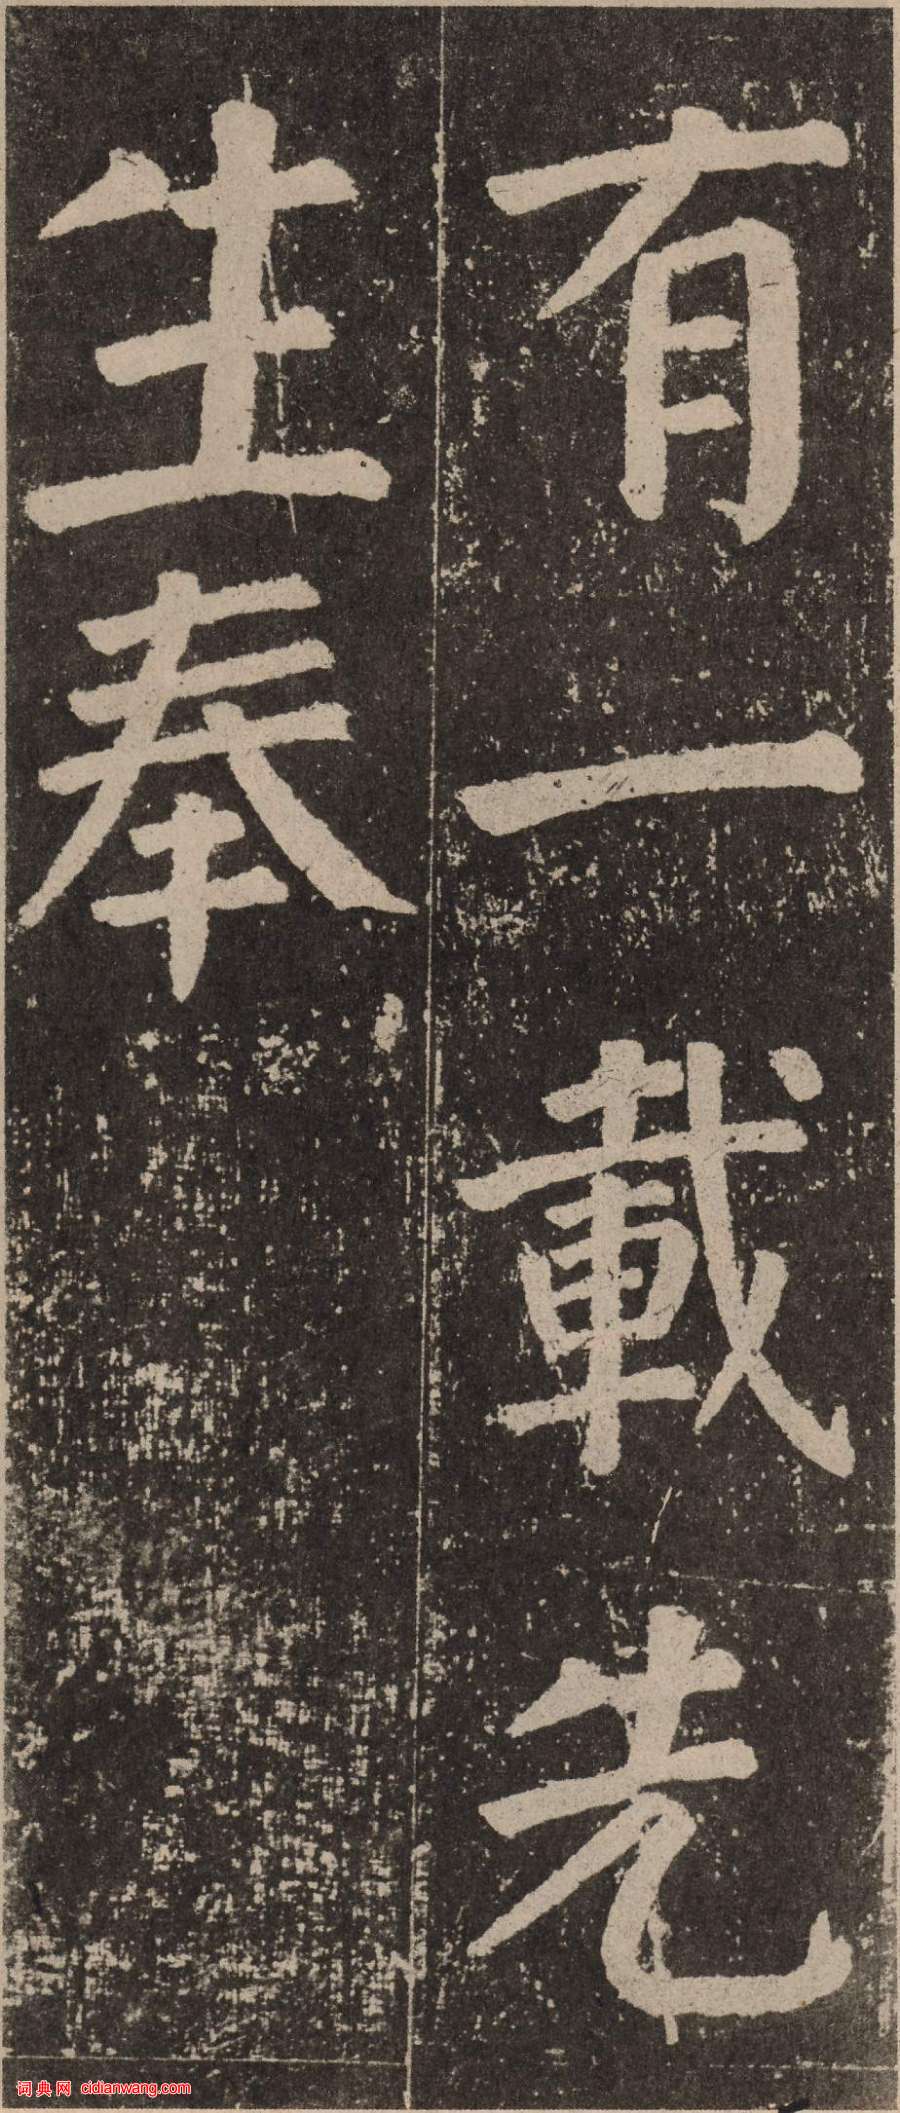 有一載先
生奉
词典网 cidianwang.com